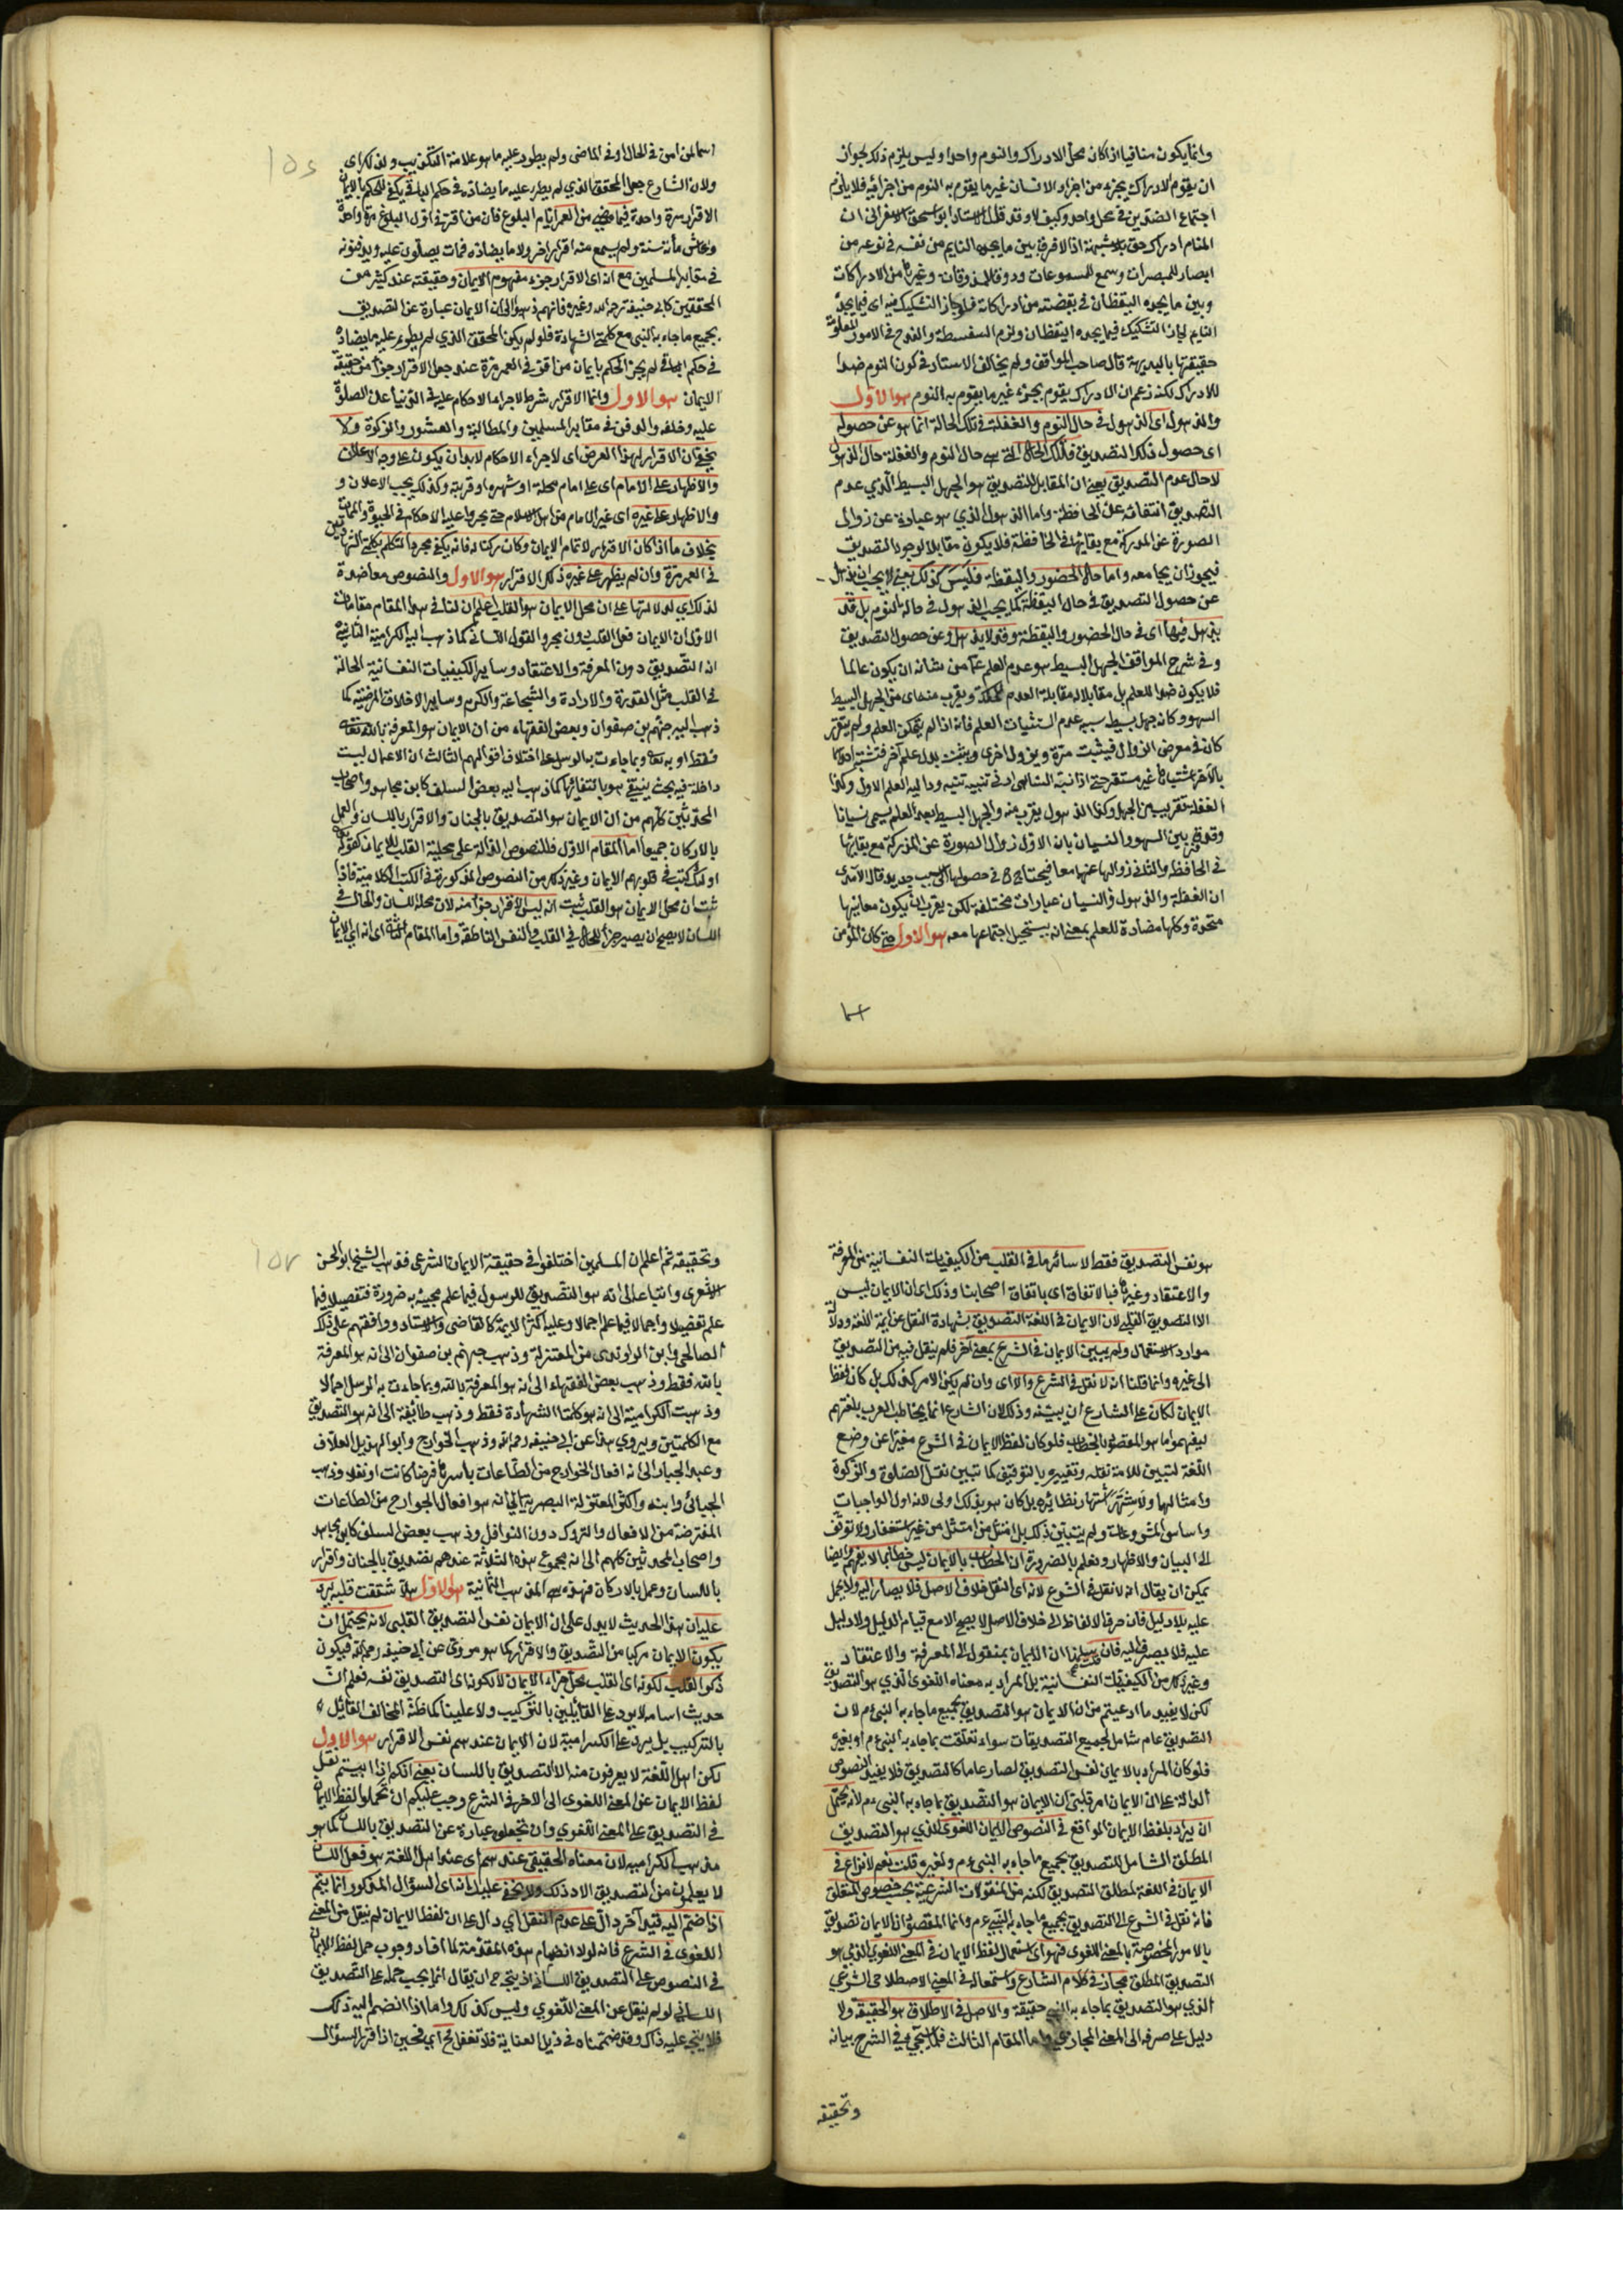 وانما يكون منافيا اذا كان محل الادراك والنوم واحدا وليس يلزم ذلك لجواز
ان يقوم الادراك بجزء من اجزاء الانسان غير ما يقوم به النوم من اجزائه فلا يلزم
اجتماع الضدين في محل واحد وكيف لا وقد قال الاستاد ابو اسحق الاسفرائى ان
المنام ادراك حق بلا شبهة اذ لا فرق بين ما يجده النايم من نفسه في نومه من
ابصار للمبصرات وسمع للمسموعات وذوق للمذوقات وغيرها من الادراكات
وبين ما يجده اليقظان في يقضته من ادراكاته فلو جاز التشكيك فيه اى فيما يجده
النايم لجاز التشكيك فيما يجده اليقظان ولزم السفسطة والقدح في الامور المعلومة
حقيقتها بالبديهة قال صاحب المواقف ولم يخالف الاستاد في كون النوم ضدا
للادراك لكنه زعم ان الادراك يقوم بجزء غير ما يقوم به النوم هو الاول
والذهول اى الذهول في حال النوم والغفلة في تلك الحالة انما هو عن حصوله
اى حصول ذلك التصديق فتلك الحال التى هى حال النوم والغفلة حال الذهول
لا حال عدم التصديق يعنى ان المقابل للتصديق هو الجهل البسيط الذي عدم
التصديق انتفائه عن الحافظة واما الذهول الذي هو عبارة عن زوال
الصورة عن المدركة مع بقايها في الحافظة فلا يكون مقابلا لوجود التصديق
فيجوز ان يجامعه واما حال الحضور واليقظة فليس كذلك يعنى لا يجب ان يذهل
عن حصول التصديق في حال اليقظة كما يجب الذهول في حالة النوم بل قد
يذهل فيها اى في حال الحضور واليقظة وقد لا يذهل وعن حصول التصديق
وفي شرح المواقف الجهل البسيط هو عدم العلم عما من شانه ان يكون عالما
فلا يكون ضدا للعلم بل مقابلا له مقابلة العدم للملكة ويقرب منه اى من الجهل البسيط
السهو وكانه جهل بسيط سببه عدم استثبات العلم فانه اذا لم يتمكن العلم ولم يتقرر
كان في معرض الزوال فيثبت مرة ويزول اخرى ويثبت بدله علم آخر فتشتبه احدهما
بالآخر اشتباها غير مستقر حتى اذا نبه الساهى ادنى تنبيه تنبه وعاد اليه العلم الاول وكذا
الغفلة تقرب من الجهل وكذا الذهول يقرب منه والجهل البسيط بعد العلم يسمى نسيانا
وقد فرق بين السهو والنسيان بان الاول زوال الصورة عن المدركة مع بقائها
في الحافظة والثانى زوالها عنها معا فيحتاج في حصولها الى سبب جديد قال الآمدى
ان الغفلة والذهول والنسيان عبارات مختلفة لكن يقرب ان يكون معانيها
متحدة وكلها مضادة للعلم بمعنى انه يستحيل اجتماعها معه هو الاول حتى كان المؤمن
اسما
اسما لمن امن في الحال او في الماضى ولم يطرء عليه ما هو علامة التكذيب ولذلك اى
ولان الشارع جعل المحقق الذي لم يطرء عليه ما يضاده في حكم الباقي يكفي للحكم بالايمان
الاقرار مرة واحدة فيما مضى من العمر ايام البلوغ فان من اقر في اول البلوغ مرة واحدة
وعاش مأة سنة ولم يسمع منه اقرار اخر ولا ما يضاده فمات يصلون عليه ويدفنونه
في مقابر المسلمين مع انه اى الاقرار جزء مفهوم الايمان وحقيقته عند كثير من
المحققين كابى حنيفة رحمه الله وغيره فانهم ذهبوا الى ان الايمان عبارة عن التصديق
بجميع ما جاء به النبى مع كلمتى الشهادة فلو لم يكن المحقق الذي لم يطرء عليه ما يضاده
في حكم الباقي لم يجز الحكم بايمان من اقر في العمر مرة عند جعل الاقرار جزأ من حقيقة
الايمان هو الاول وانما الاقرار شرط لاجراء الاحكام عليه في الدنيا من الصلوة
عليه وخلفه والدفن في مقابر المسلمين والمطالبة والعشور والزكوة ولا
يخفى ان الاقرار لهذا الغرض اى لاجراء الاحكام لابد ان يكون على وجه الاعلان
والاظهار على الامام اى على امام محلة او شهره او قريته وكذلك يجب الاعلان و
والاظهار على غيره اى غير الامام من اهل الاسلام حتى يجروا عليه الاحكام في الحيوة والممات
بخلاف ما اذا كان الاقرار لاتمام الايمان وكان ركنا له فانه يكفي مجرد التكلم بكلمتى الشهادتين
في العمر مرة وان لم يظهر على غيره ذلك الاقرار هو الاول والنصوص معاضدة
لذلك اى لدلالتها على ان محل الايمان هو القلب اعلم ان لنا في هذا المقام مقامات
الاول ان الايمان فعل القلب دون مجرد القول اللسانى كما ذهب اليه الكرامية الثانى
انه التصديق دون المعرفة والاعتقاد وساير الكيفيات النفسانية الحالة
في القلب مثل القدرة والارادة والشجاعة والكرم وساير الاخلاق المرضية كما
ذهب اليه جهم بن صفوان وبعض الفقهاء من ان الايمان هو المعرفة بالله تعالى
فقط او به تعالى وبما جاءت به الرسل على اختلاف اقوالهم الثالث ان الاعمال ليست
داخلة فيه بحيث ينتفى هو بانتفائها كما ذهب اليه بعض السلف كابن مجاهد واصحاب
المحدثين كلهم من ان الايمان هو التصديق بالجنان والاقرار باللسان والعمل
بالاركان جميعا اما المقام الاول فللنصوص الدالة على محلية القلب للايمان كقوله تعالى
اولئك كتب في قلوبهم الايمان وغير ذلك من النصوص المذكورة في الكتب الكلامية فاذا
ثبت ان محل الايمان هو القلب ثبت انه ليس الاقرار جزأ منه لان محله اللسان والحال في
اللسان لا يصح ان يصير جزأ للحال في القلب في النفس الناطقة واما المقام الثانى اى انه اى الايمان
هو نفس التصديق فقط لا سائر ما في القلب من الكيفيات النفسانية من المعرفة
والاعتقاد وغيرها فبالاتفاق اى باتفاق اصحابنا وذلك اى ان الايمان ليس
الا التصديق القلبى لان الايمان في اللغة التصديق بشهادة النقل عن ائمة اللغة ودلالة
موارد الاستعمال ولم يبين الايمان في الشرع بمعنى آخر فلم ينقل فيه من التصديق
الى غيره وانما قلنا انه لا نقل في الشرع والا اى وان لم يكن الامر كذلك بل كان لفظ
الايمان لكان على الشارع ان يبينه وذلك لان الشارع انما يخاطب العرب بلغتهم
ليفهموا ما هو المقصود بالخطاب فلو كان لفظ الايمان في الشرع مغيرا عن وضع
اللغة لتبين للامة نقله وتغييره بالتوقيف كما تبين نقل الصلوة والزكوة
وامثالها ولاشتهر اشتهار نظائره بل كان هو بذلك اولى لانه اول الواجبات
واساس المشروعات ولم يتبين ذلك بل امتثل من امتثل من غير استفسار ولا توقف
الى البيان والاظهار ونعلم بالضرورة ان الخطاب بالايمان ليس خطابا لا يفهم وايضا
يمكن ان يقال انه لا نقل في الشرع لانه اى النقل خلاف الاصل فلا يصار اليه ولا يحمل
عليه بلا دليل فان صرف الالفاظ الى خلاف الاصل لا يصح الا مع قيام الدليل ولا دليل
عليه فلا يصير اليه فان قلت سلمنا ان الايمان بمنقول الى المعرفة والاعتقاد
وغير ذلك من الكيفيات النفسانية بل المراد به معناه اللغوى الذي هو التصديق
لكن لا يفيد ما ادعيتم من ان الايمان هو التصديق بجميع ما جاء به النبى ءم لان
التصديق عام شامل لجميع التصديقات سواء تعلقت بما جاء به النبى ءم او بغيره
فلو كان المراد بالايمان نفس التصديق لصار عاما كالتصديق فلا يفيد النصوص
الدالة على ان الايمان امر قلبى ان الايمان هو التصديق بما جاء به النبى ءم لانه يحتمل
ان يراد بلفظ الايمان الواقع في النصوص الايمان اللغوى الذي هو التصديق
المطلق الشامل للتصديق بجميع ما جاء به النبى ءم ولغيره قلت نعم لا نزاع في
الايمان في اللغة لمطلق التصديق لكنه من المنقولات الشرعية بحسب خصوص المتعلق
فانه نقل في الشرع الى التصديق بجميع ما جاء به النبى ءم وانما المقصود ان الايمان تصديق
بالامور المخصوصة بالمعنى اللغوى فهو اى استعمال لفظ الايمان في المعنى اللغوى الذي هو
التصديق المطلق مجاز في كلام الشارع واستعماله في المعنى الاصطلاحى الشرعي
الذي هو التصديق بما جاء به النبى حقيقة والاصل في الاطلاق هو الحقيقة ولا
دليل على صرفه الى المعنى المجازى واما المقام الثالث فلما سيجئ في الشرح بيانه
وتحقيقه
وتحقيقه ثم اعلم ان المسلمين اختلفوا في حقيقة الايمان الشرعى فذهب الشيخ ابو الحسن
الاشعرى واتباعه الى انه هو التصديق للرسول فيما علم مجيئه به ضرورة فتفصيلا فيما
علم تفصيلا واجمالا فيما علم اجمالا وعليه اكثر الايمة كالقاضى والاستاد ووافقهم على ذلك
الصالحى وابن الراوندى من المعتزلة وذهب جهم بن صفوان الى انه هو المعرفة
بالله فقط وذهب بعض الفقهاء الى انه هو المعرفة بالله وبما جاءت به الرسل اجمالا
وذهبت الكرامية الى انه هو كلمتا الشهادة فقط وذهب طائفة الى انه هو التصديق
مع الكلمتين ويروى هذا عن ابى حنيفه رحمه الله وذهب الخوارج وابو الهذيل العلاف
وعبد الجبار الى انه افعال الخوارج من الطاعات باسرها فرضا كانت او نفلا وذهب
الجبائى وابنه واكثر المعتزلة البصرية الى انه هو افعال الجوارح من الطاعات
المفترضة من الافعال والتروك دون النوافل وذهب بعض السلف كابن مجاهد
واصحاب المحدثين كلهم الى انه مجموع هذه الثلاثة عندهم تصديق بالجنان واقرار
باللسان وعمل بالاركان فهذه هى المذهب الثمانية هو الاول هلا شققت قلبه يرد
عليه ان هذا الحديث لا يدل على ان الايمان نفس التصديق القلبى لانه يحتمل ان
يكون الايمان مركبا من التصديق والاقرار كما هو مروى عن ابى حنيفه رحمه الله فيكون
ذكر القلب لكونه اى القلب محل جزء الايمان لا لكونه اى التصديق نفسه فعلم ان
حديث اسامه لا يرد على القائلين بالتركيب ولا علينا كما ظنه المخالف القائل
بالتركيب بل يرد على الكرامية لان الايمان عندهم نفس الاقرار هو الاول
لكن اهل اللغة لا يعرفون منه الا التصديق باللسان يعنى انكم اذا ابيتم نقل
لفظ الايمان عن المعنى اللغوى الى الآخر في الشرع وجب عليكم ان تحملوا لفظ الايمان
في التصديق على المعنى اللغوي وان تجعلوه عبارة عن التصديق باللسان كما هو
مذهب الكرامية لان معناه الحقيقى عندهم اى عند اهل اللغة هو فعل اللسان
لا يعلمون من التصديق الا ذلك ولا يخفى عليك انه اى السؤال المذكور انما يتم
اذا ضم اليه قيد آخر دال على عدم النقل اى دال على ان لفظ الايمان لم ينقل من المعنى
اللغوى في الشرع فانه لولا انضمام هذه المقدمة لما افاد وجوب حمل لفظ الايمان
في النصوص على التصديق اللسانى اذ يتجه ح ان يقال انما يجب حمله على التصديق
اللسانى لو لم ينقل عن المعنى اللغوي وليس كذلك واما اذا انضم اليه ذلك
فلا يتجه عليه ذاك وقد ضممناه في ذيل العناية فلا تغفل ح اى فحين اذا قرر السؤال